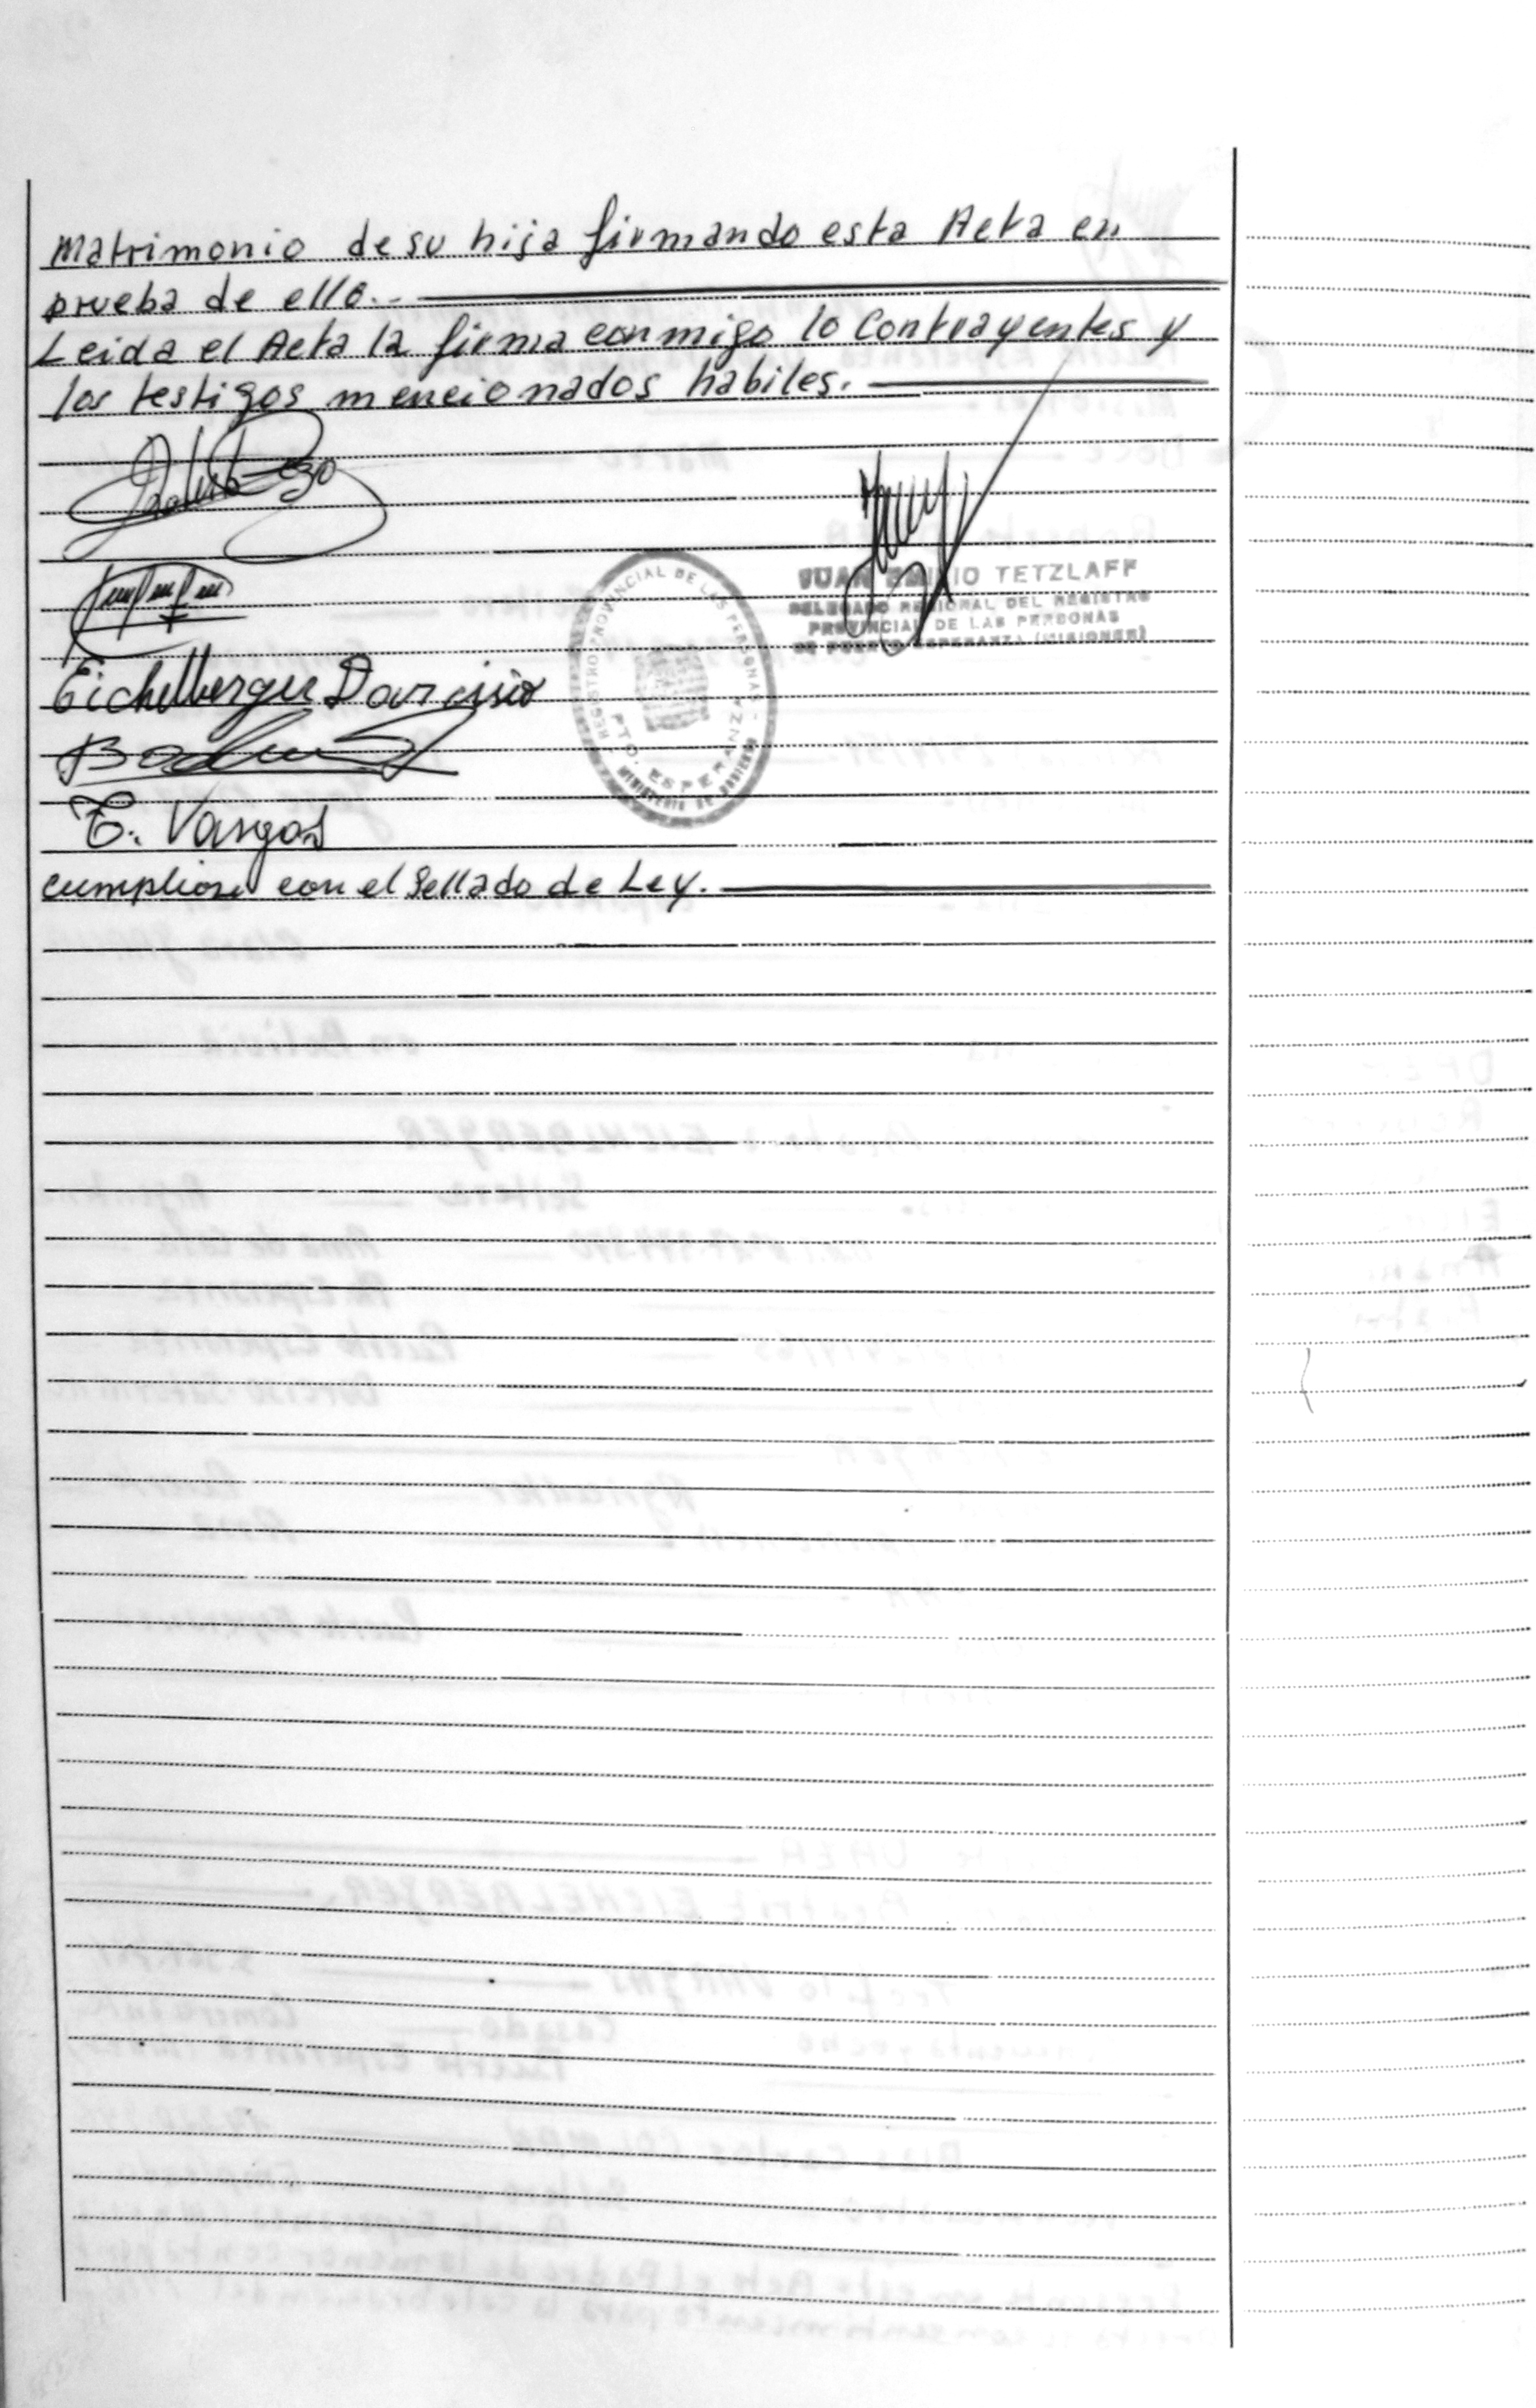 Matrimonio de su hija firmando esta Acta en
prueba de ello.-
Leida el Acta la firma conmigo lo Contrayentes y
los testigos mencionados habiles.
JUAN EMILIO TETZLAFF
DELEGADO REGIONAL DEL REGISTRO
PROVINCIAL DE LAS PERSONAS
DE PUERTO ESPERANZA (MISIONES)
REGISTRO PROVINCIAL DE LAS PERSONAS -
PTO. ESPERANZA
MINISTERIO DE GOBIERNO
Eichelberger Darcisio
E. Vargas
cumpliose con el Sellado de Ley.